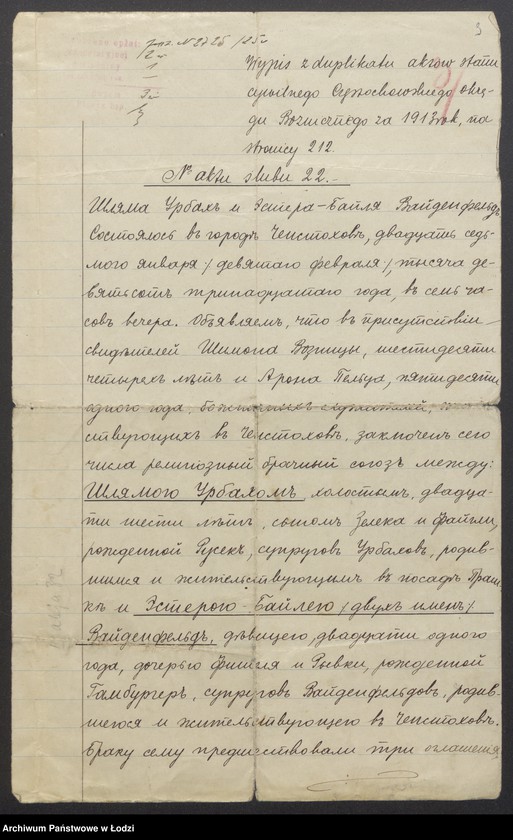 3
Wypis z duplikatu aktów stanu
cywilnego
za 1913 rok, na
stronicy 212.
№ aktu ślubu 22.-
Шляма Урбахъ и Эстера-Байля Вайденфельдъ
Состоялось въ городѣ Ченстоховѣ, двадцать седь-
мого января / девятаго февраля /, тысяча де-
вятьсотъ тринадцатаго года, въ семь ча-
совъ вечера. Объявляемъ, что въ присутствіи
свидѣтелей Шимона Возницы, шестидесяти
четырехъ лѣтъ и Арона Пельца, пятидесяти
одного года,
ствующихъ въ Ченстоховѣ, заключенъ сего
числа религіозный брачный союзъ между:
Шлямого Урбахомъ, холостымъ, двадца-
ти шести лѣтъ, сыномъ Залека и Файгли,
рожденной Русекъ, супруговъ Урбаховъ, родив-
шимся и жительствующимъ въ посадѣ Праш-
кѣ и Эстерого-Байлею /двухъ именъ/
Вайденфельдъ, дѣвицего, двадцати одного
года, дочерью Фишеля и Рывки, рожденной
Гамбургеръ, супруговъ Вайденфельдовъ, родив-
шегося и жительствующего въ Ченстоховѣ.
Браку сему предшествовали три оглашенія,
Archiwum Państwowe w Łodzi